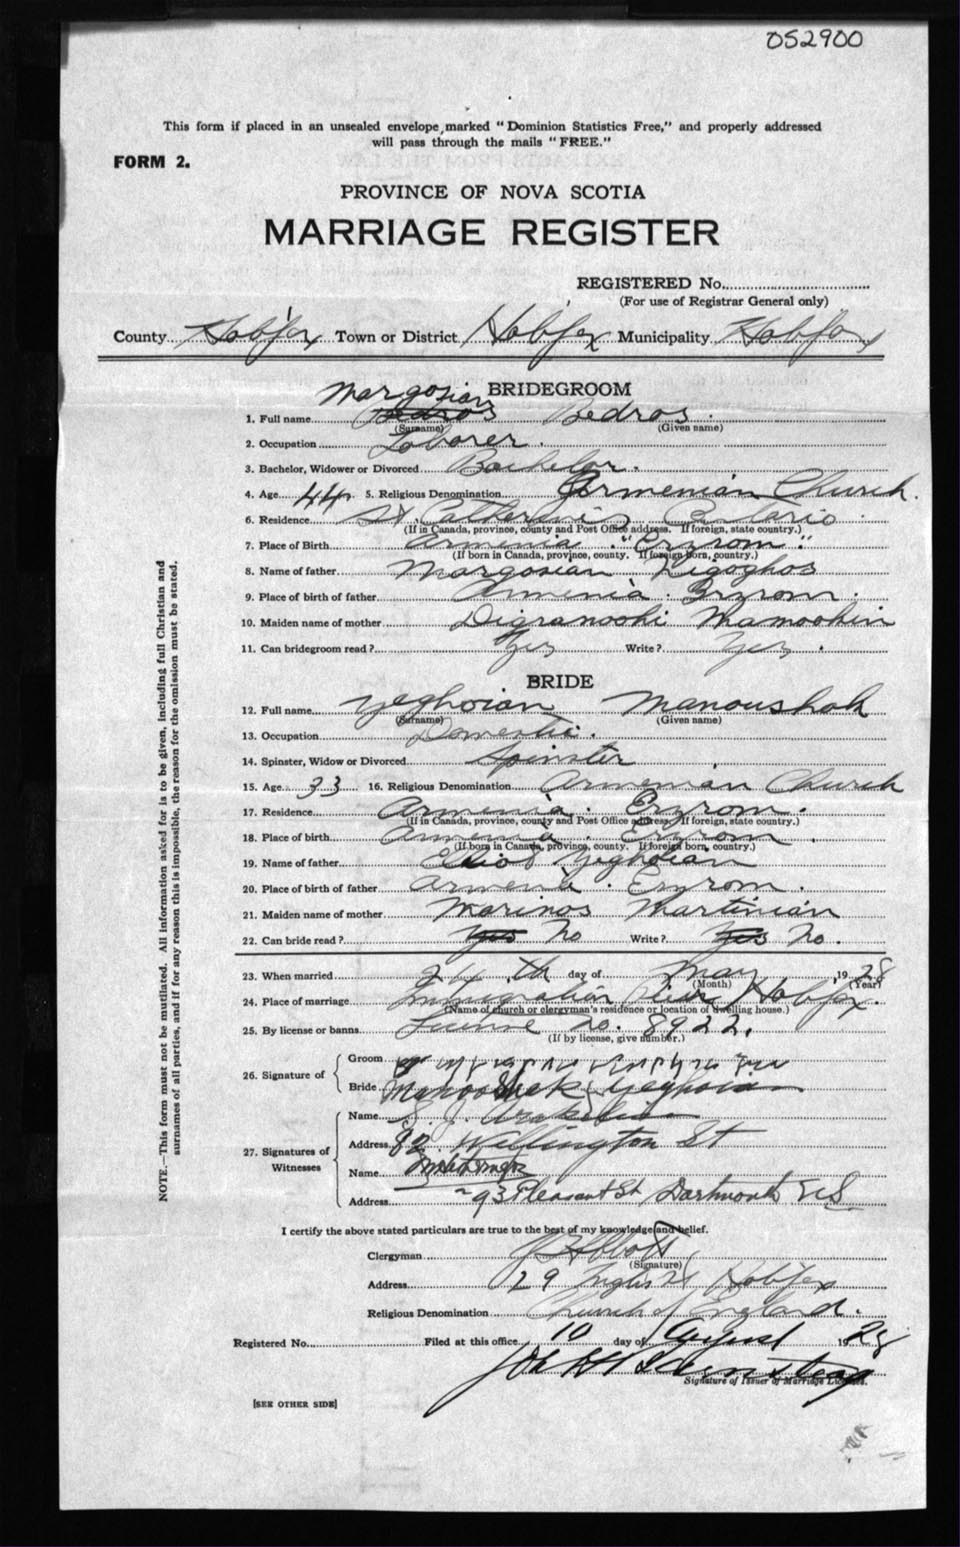 052900
This form if placed in an unsealed envelope, marked "Dominion Statistics Free," and properly addressed
will pass through the mails "FREE."
FORM 2.
PROVINCE OF NOVA SCOTIA
MARRIAGE REGISTER
REGISTERED No.
(For use of Registrar General only)
County Halifax Town or District Halifax Municipality Halifax
BRIDEGROOM
Margosian
1. Full name Bedros Bedros.
(Surname) (Given name)
2. Occupation Laborer.
3. Bachelor, Widower or Divorced Bachelor.
4. Age 44 5. Religious Denomination Armenian Church.
6. Residence St. Catherines Ontario
(If in Canada, province, county and Post Office address. If foreign, state country.)
7. Place of Birth Armenia. "Erzrom".
(If born in Canada, province, county. If foreign born, country.)
8. Name of father Margosian Kigoghos
9. Place of birth of father Armenia. Erzrom.
10. Maiden name of mother Digranoohi Mamoohin
11. Can bridegroom read? Yes Write? Yes.
BRIDE
12. Full name Yeghoian Manoushak
(Surname) (Given name)
13. Occupation Domestic.
14. Spinster, Widow or Divorced Spinster
15. Age 33 16. Religious Denomination Armenian Church
17. Residence Armenia. Erzrom.
(If in Canada, province, county and Post Office address. If foreign, state country.)
18. Place of birth Armenia. Erzrom.
(If born in Canada, province, county. If foreign born, country.)
19. Name of father Yeghoian
20. Place of birth of father Armenia. Erzrom.
21. Maiden name of mother Marinos Martinian
22. Can bride read? Yes No Write? Yes No.
23. When married 24th day of May 1928
(Month) (Year)
24. Place of marriage Immigration Pier Halifax.
(Name of church or clergyman's residence or location of dwelling house.)
25. By license or banns License No. 8922.
(If by license, give number.)
26. Signature of
Groom
Bride Manooshak Yeghoian
27. Signatures of Witnesses
Name
Address 82 Wellington St
Name
Address 93 Pleasant St. Dartmouth N S
I certify the above stated particulars are true to the best of my knowledge and belief.
Clergyman
(Signature)
Address 29 Inglis St Halifax
Religious Denomination Church of England.
Registered No. Filed at this office 10 day of August 1928
Signature of Issuer of Marriage Licenses.
[SEE OTHER SIDE]
NOTE.—This form must not be mutilated. All information asked for is to be given, including full Christian and
surnames of all parties, and if for any reason this is impossible, the reason for the omission must be stated.